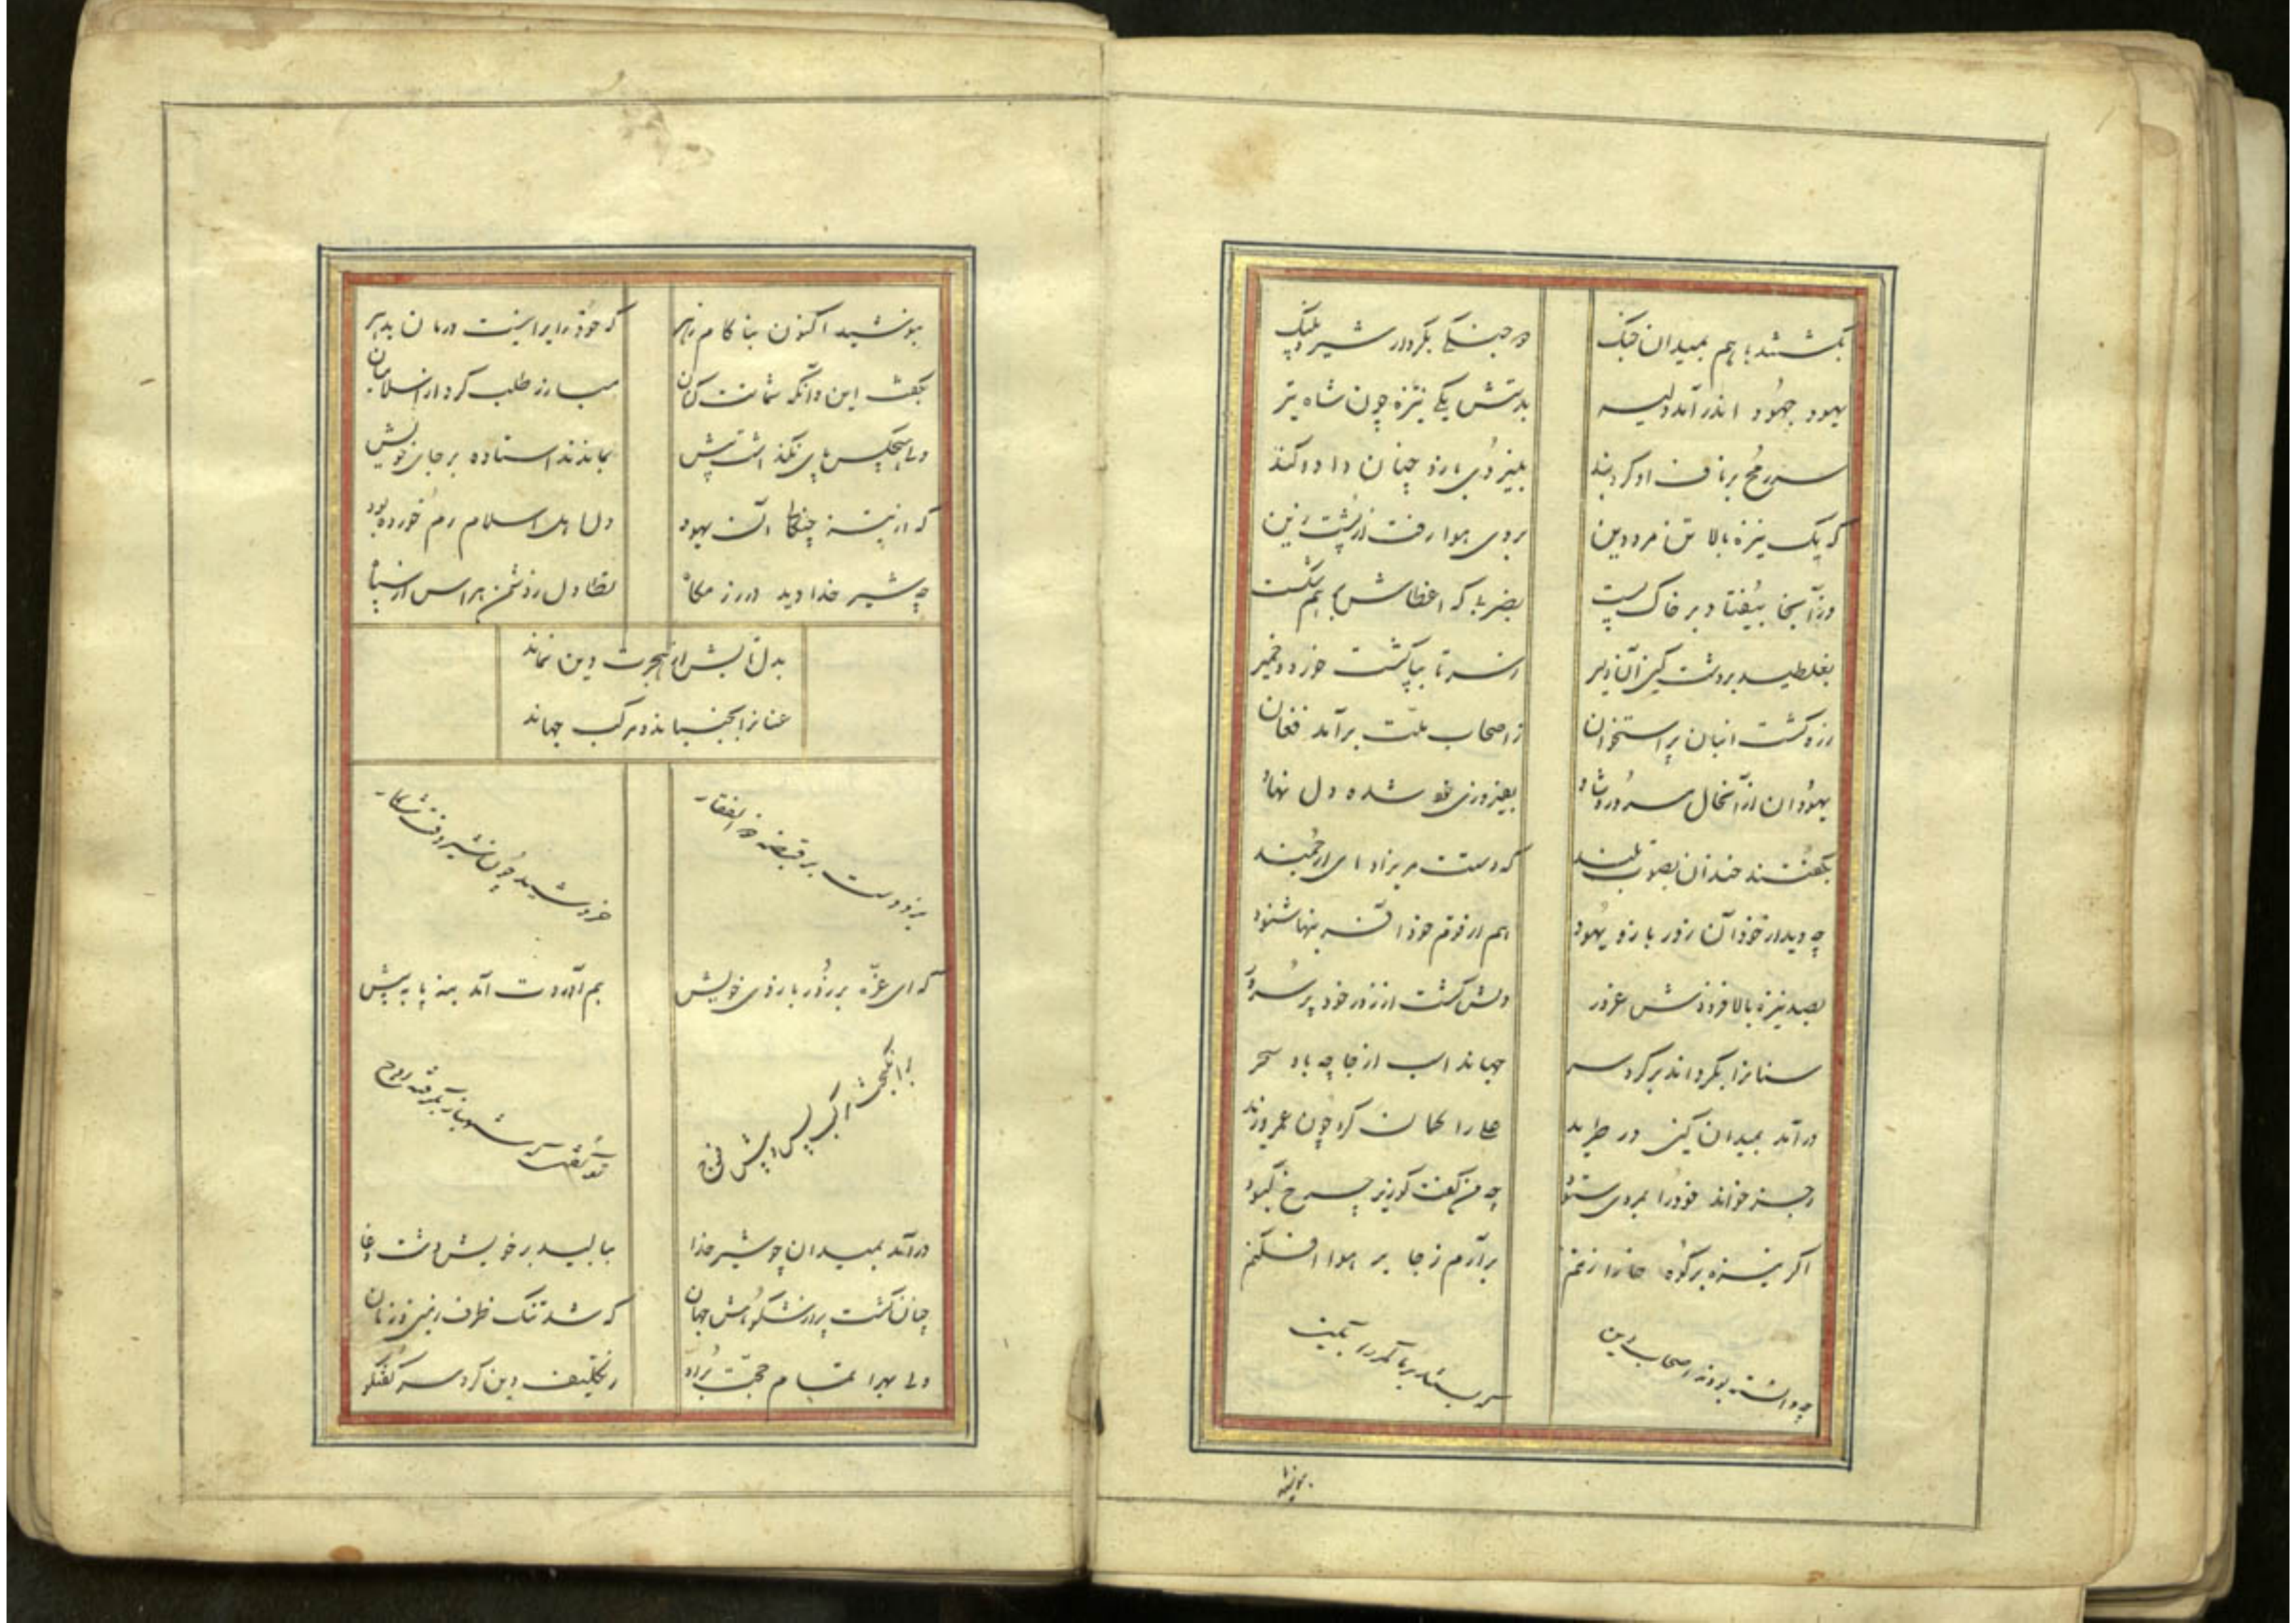 بگشتند با هم بمیدان جنگ
دو جنگی بکردار شیر و پلنگ
یهود جهود اندر آمد دلیر
بدستش یکی نیزه چون شاه تیر
سر رمح بر ناف او کرد بند
بنیروی بازو چنان داد و کند
که یک نیزه بالا تن مرد دین
بروی هوا رفت از پشت زین
وز آنجا بیفتاد بر خاک پست
بضربی که اعظاش بر هم شکست
بغلطید بر دشت کین آن دلیر
ز سر تا بپا گشت خورد و خمیر
زره گشت انبان پر استخوان
ز اصحاب ملت برآمد فغان
یهودان از آنحال مسرور و شاد
بفیروزی خود شده دل نهاد
بگفتند خندان بصوت بلند
که دستت مریزاد ای ارجمند
چو دید از خود آن زور بازو یهود
هم از قوم خود آفرینها شنود
بصد نیزه بالا فزودش غرور
دلش گشت از زور خود پر سرور
سنانرا بگرداند بر گرد سر
جهاند اسب از جا چو باد سحر
درآمد بمیدان کین در طرید
علی را گمان کرد چون عمرو زید
رجز خواند خود را بمردی ستود
چو من گفت کو زیر چرخ کبود
اگر نیزه بر کوه خارا زنم
برآرم ز جا بر هوا افکنم
چو دانسته بودند اصحاب دین
بنوشید
بنوشید اکنون بناکام زهر
که خود را برانیت درمان بدهر
بگفت این و آنگه شماتت کنان
مبارز طلب کرد از اسلامیان
ولی هیچکس پای نگذاشت پیش
بماندند استاده بر جای خویش
که از نیزه جنگی آن یهود
دل اهل اسلام رم خورده بود
چو شیر خدا دید در رزمگاه
بدل تابش از هجرت دین نماند
عنانرا بجنباند و مرکب جهاند
بزد دست بر قبضه ذوالفقار
خروشید چون شیر وقت شکار
که ای غره بر زور بازوی خویش
بم آوردت آمد بنه پا به پیش
برانگیخت مرکب پس از پیش فوج
درآمد بمیدان چو شیر خدا
ببالید بر خویش دشت وغا
چنان گشت پر از شکوهش جهان
که شد تنگ ظرف زمین و زمان
ولی بهر اتمام حجت براو
ز تکلیف دین کرد سر گفتگو